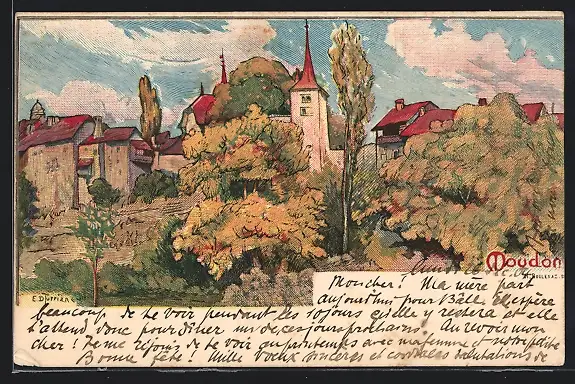 Moudon
E. Dufrière
Moncher! Ma mère part
aujourd'hui pour Bâle et espère
beaucoup de te voir pendant les jours qu'elle y restera et elle
t'attend donc pour dîner un de ces jours prochains. Au revoir mon
cher! Je me réjouis de te voir au printemps avec ma femme et notre petite
Bonne fête! Mille voeux sincères et cordiales salutations de